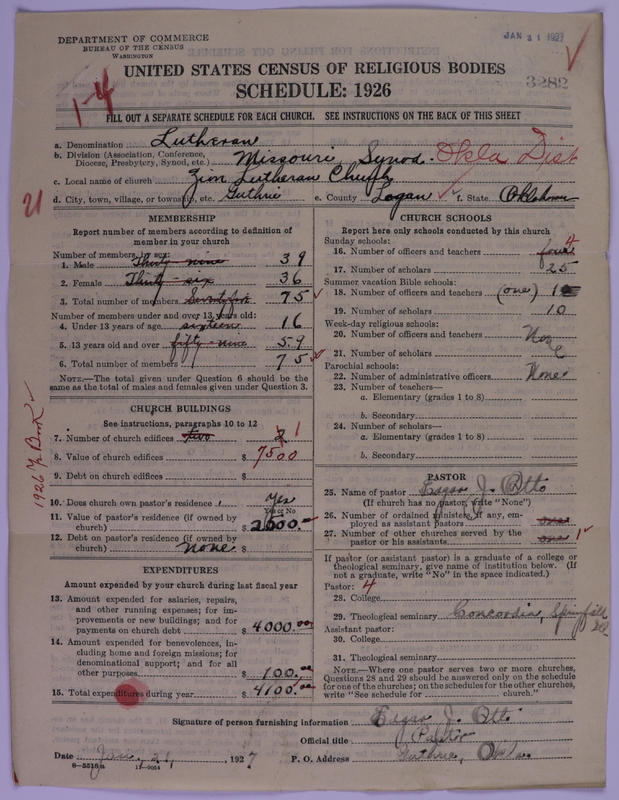 DEPARTMENT OF COMMERCE
BUREAU OF THE CENSUS
WASHINGTON
JAN 31 1927
UNITED STATES CENSUS OF RELIGIOUS BODIES
SCHEDULE: 1926
3282
1-4
FILL OUT A SEPARATE SCHEDULE FOR EACH CHURCH. SEE INSTRUCTIONS ON THE BACK OF THIS SHEET
a. Denomination Lutheran
b. Division (Association, Conference, Diocese, Presbytery, Synod, etc.) Missouri Synod. Okla Dist
c. Local name of church Zion Lutheran Church
d. City, town, village, or township, etc. Guthrie e. County Logan f. State Oklahoma
MEMBERSHIP
Report number of members according to definition of
member in your church
Number of members, by sex:
1. Male Thirty-nine 39
2. Female Thirty-six 36
3. Total number of members Seventy five 75
Number of members under and over 13 years old:
4. Under 13 years of age sixteen 16
5. 13 years old and over fifty-nine 59
6. Total number of members 75
NOTE.—The total given under Question 6 should be the
same as the total of males and females given under Question 3.
CHURCH BUILDINGS
See instructions, paragraphs 10 to 12
7. Number of church edifices two 2 1
8. Value of church edifices $ 7500
9. Debt on church edifices $
10. Does church own pastor's residence? Yes
Yes or No
11. Value of pastor's residence (if owned by
church) $ 2500.
12. Debt on pastor's residence (if owned by
church) none $
1926 Y Book
EXPENDITURES
Amount expended by your church during last fiscal year
13. Amount expended for salaries, repairs,
and other running expenses; for im-
provements or new buildings; and for
payments on church debt $ 4000.00
14. Amount expended for benevolences, in-
cluding home and foreign missions; for
denominational support; and for all
other purposes $ 100.00
15. Total expenditures during year $ 4100.00
CHURCH SCHOOLS
Report here only schools conducted by this church
Sunday schools:
16. Number of officers and teachers four 4
17. Number of scholars 25
Summer vacation Bible schools:
18. Number of officers and teachers (one) 1
19. Number of scholars 10
Week-day religious schools:
20. Number of officers and teachers None
21. Number of scholars
Parochial schools:
22. Number of administrative officers None
23. Number of teachers—
a. Elementary (grades 1 to 8)
b. Secondary
24. Number of scholars—
a. Elementary (grades 1 to 8)
b. Secondary
PASTOR
25. Name of pastor Edgar J. Otto
(If church has no pastor, write "None")
26. Number of ordained ministers, if any, em-
ployed as assistant pastors one
27. Number of other churches served by the
pastor or his assistants one 1
If pastor (or assistant pastor) is a graduate of a college or
theological seminary, give name of institution below. (If
not a graduate, write "No" in the space indicated.)
Pastor: 4
28. College
29. Theological seminary Concordia, Springfield Ill
Assistant pastor:
30. College
31. Theological seminary
NOTE.—Where one pastor serves two or more churches,
Questions 28 and 29 should be answered only on the schedule
for one of the churches; on the schedules for the other churches,
write "See schedule for church."
Signature of person furnishing information Edgar J. Otto
Official title Pastor
Date Jan. 21, 1927 P. O. Address Guthrie, Okla.
8-5516a 11-9054